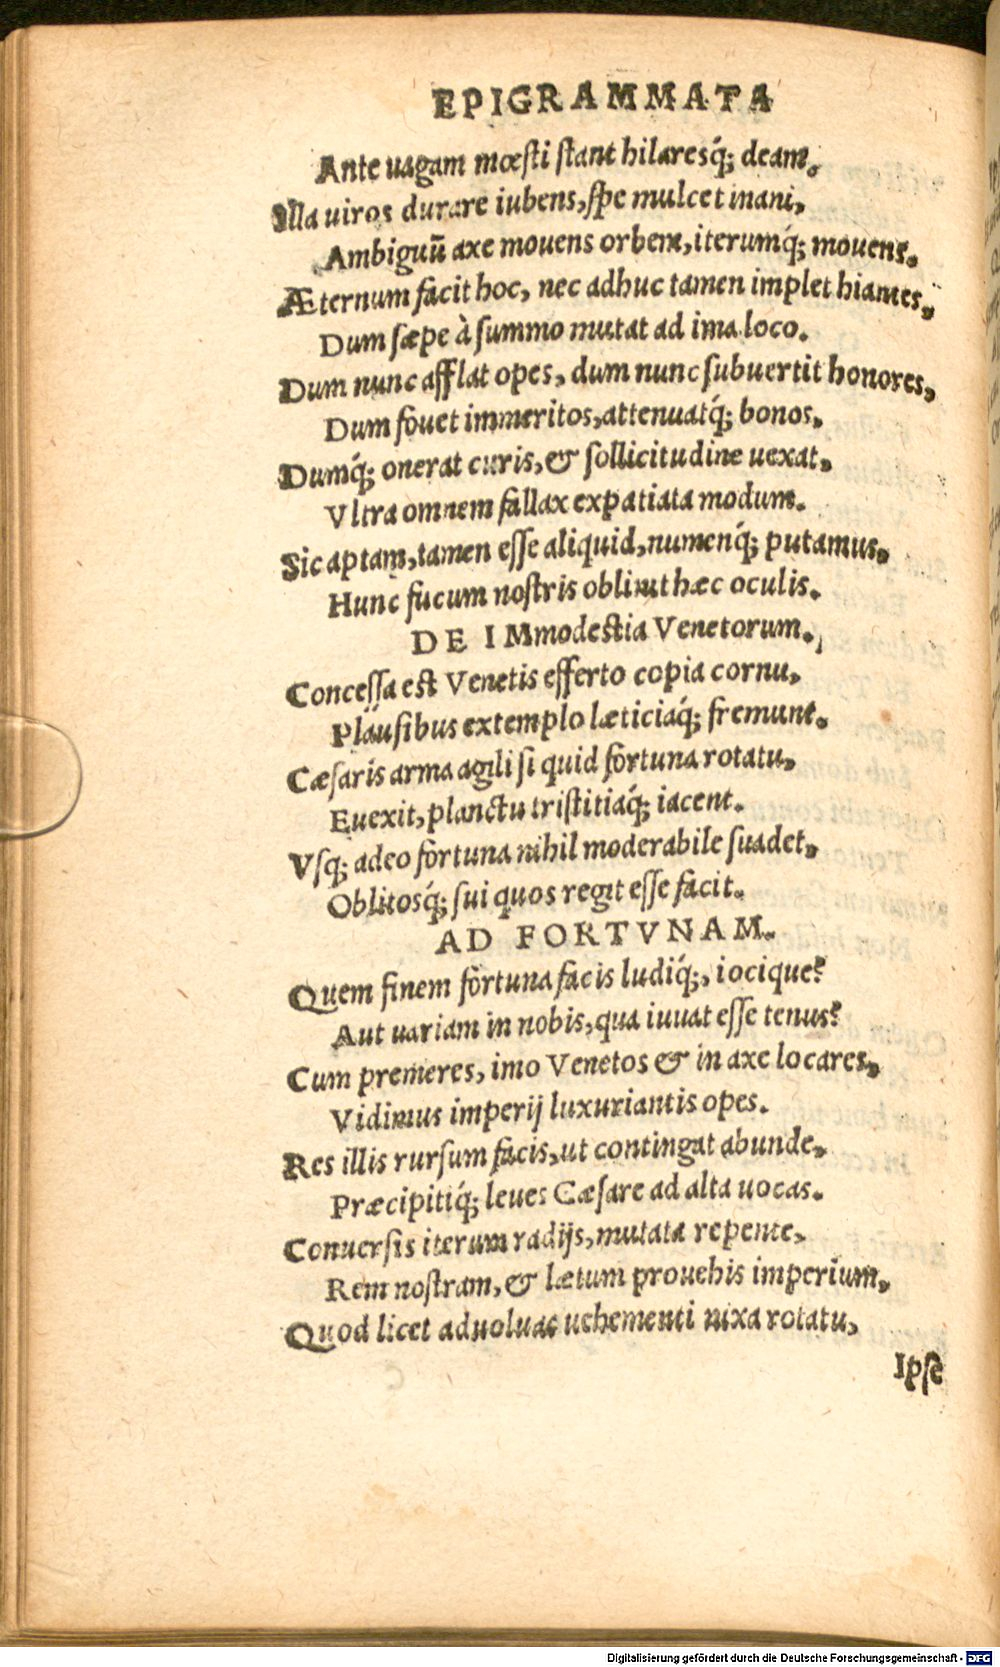 EPIGRAMMATA
Ante uagam mœsti stant hilaresq́; deam.
Illa uiros durare iubens, spe mulcet inani,
Ambiguũ axe mouens orbem, iterumq́; mouens.
Æternum facit hoc, nec adhuc tamen implet hiantes,
Dum sæpe à summo mutat ad ima loco.
Dum nunc afflat opes, dum nunc subuertit honores,
Dum fouet immeritos, attenuatq́; bonos.
Dumq́; onerat curis, & sollicitudine uexat,
Vltra omnem fallax expatiata modum.
Sic aptam, tamen esse aliquid, numenq́; putamus,
Hunc fucum nostris oblinit hæc oculis.
DE IMmodestia Venetorum.
Concessa est Venetis efferto copia cornu,
Plausibus extemplo læticiaq́; fremunt.
Cæsaris arma agili si quid fortuna rotatu,
Euexit, planctu tristitiaq́; iacent.
Vsq; adeo fortuna nihil moderabile suadet,
Oblitosq́; sui quos regit esse facit.
AD FORTVNAM.
Quem finem fortuna facis ludiq́;, iocique?
Aut uariam in nobis, qua iuuat esse tenus?
Cum premeres, imo Venetos & in axe locares,
Vidimus imperij luxuriantis opes.
Res illis rursum facis, ut contingat abunde,
Præcipitiq́; leues Cæsare ad alta uocas.
Conuersis iterum radijs, mutata repente,
Rem nostram, & lætum prouehis imperium,
Quod licet aduoluas uehementi nixa rotatu,
Ipse
Digitalisierung gefördert durch die Deutsche Forschungsgemeinschaft - DFG